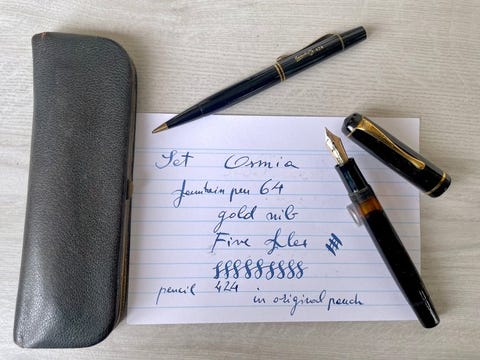 Osmia 424
Set Osmia
fountain pen 64
gold nib
Fine flex
pencil 424 in original pouch